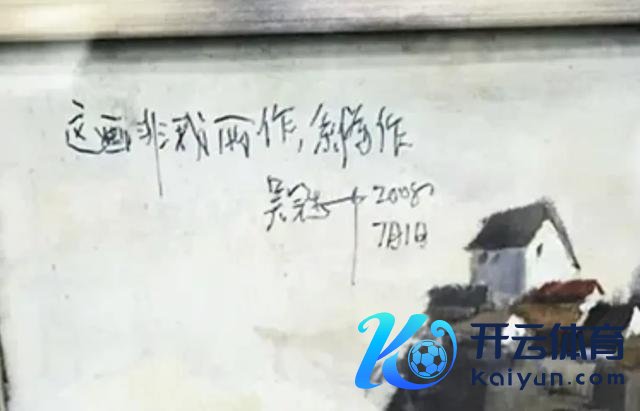 这画非我所作,系伪作
吴冠中 2008
7月1日
开云体育
Kaiyun.com